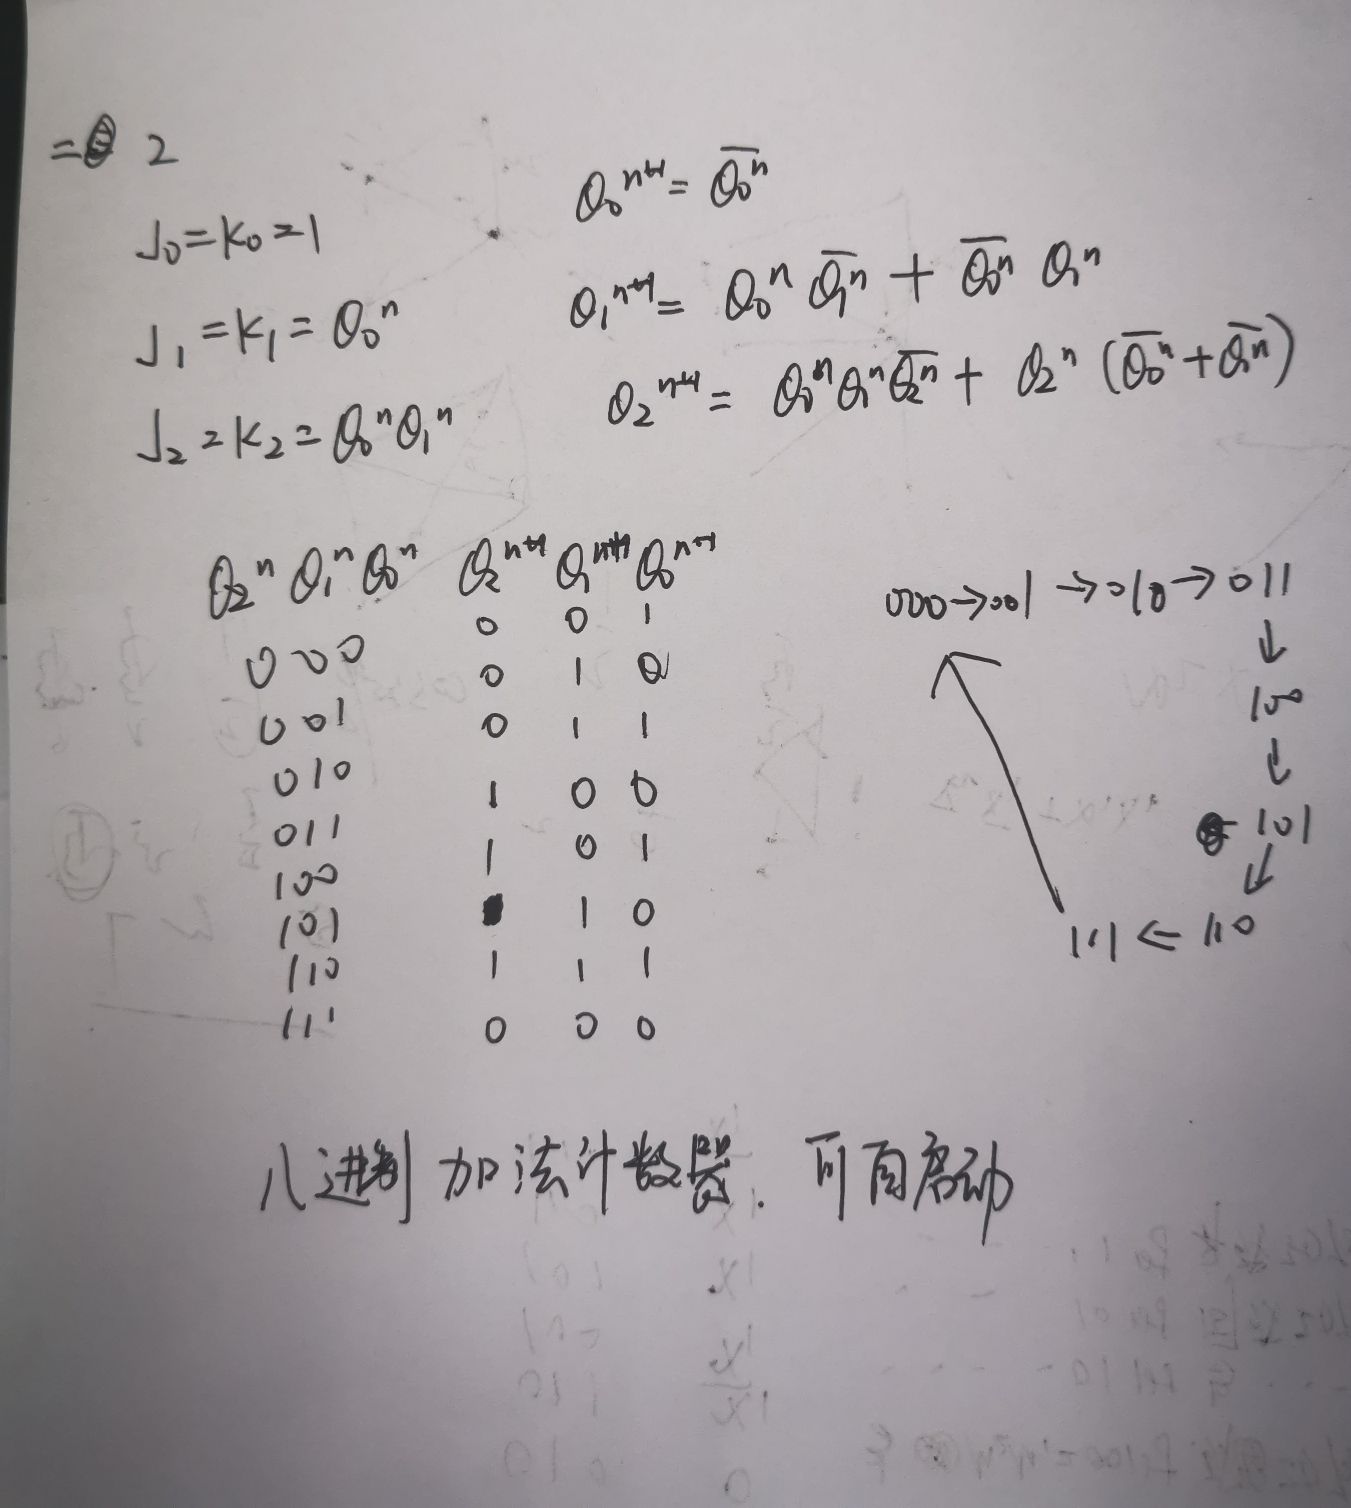 = 2
J₀=K₀=1
J₁=K₁=Q₀ⁿ
J₂=K₂=Q₀ⁿQ₁ⁿ
Q₀ⁿ⁺¹= Q̅₀ⁿ
Q₁ⁿ⁺¹= Q₀ⁿ Q̅₁ⁿ + Q̅₀ⁿ Q₁ⁿ
Q₂ⁿ⁺¹= Q₀ⁿQ₁ⁿQ̅₂ⁿ + Q₂ⁿ (Q̅₀ⁿ+Q̅₁ⁿ)
Q₂ⁿ Q₁ⁿ Q₀ⁿ Q₂ⁿ⁺¹ Q₁ⁿ⁺¹ Q₀ⁿ⁺¹
000 0 0 1
001 0 1 0
010 0 1 1
011 1 0 0
100 1 0 1
101 1 0
110 1 1 1
111 0 0 0
000→001→010→011
↓
100
↓
101
↓
111←110
八进制加法计数器. 可自启动